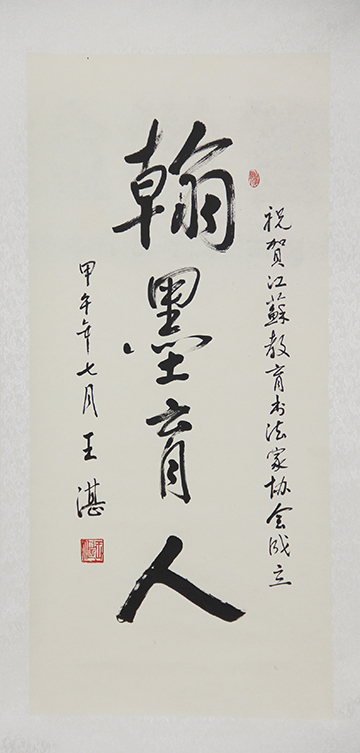 祝贺江蘇教育书法家协会成立
翰墨育人
甲午年七月王湛